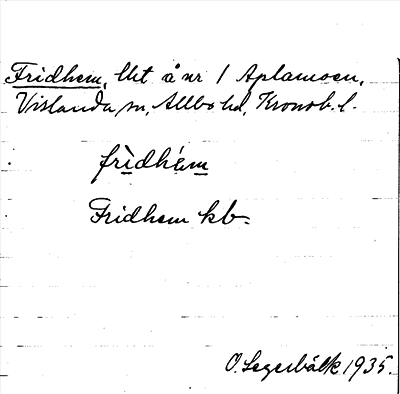 Fridhem, lht å nr 1 Aplamoen,
Vislanda sn, Allbo hd, Kronob. l.
frìdhém
Fridhem kb.
O. Segerbälk 1935.